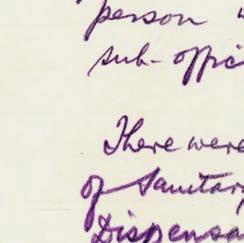 person
sub-offic
There were
of Sanitary
Dispensa